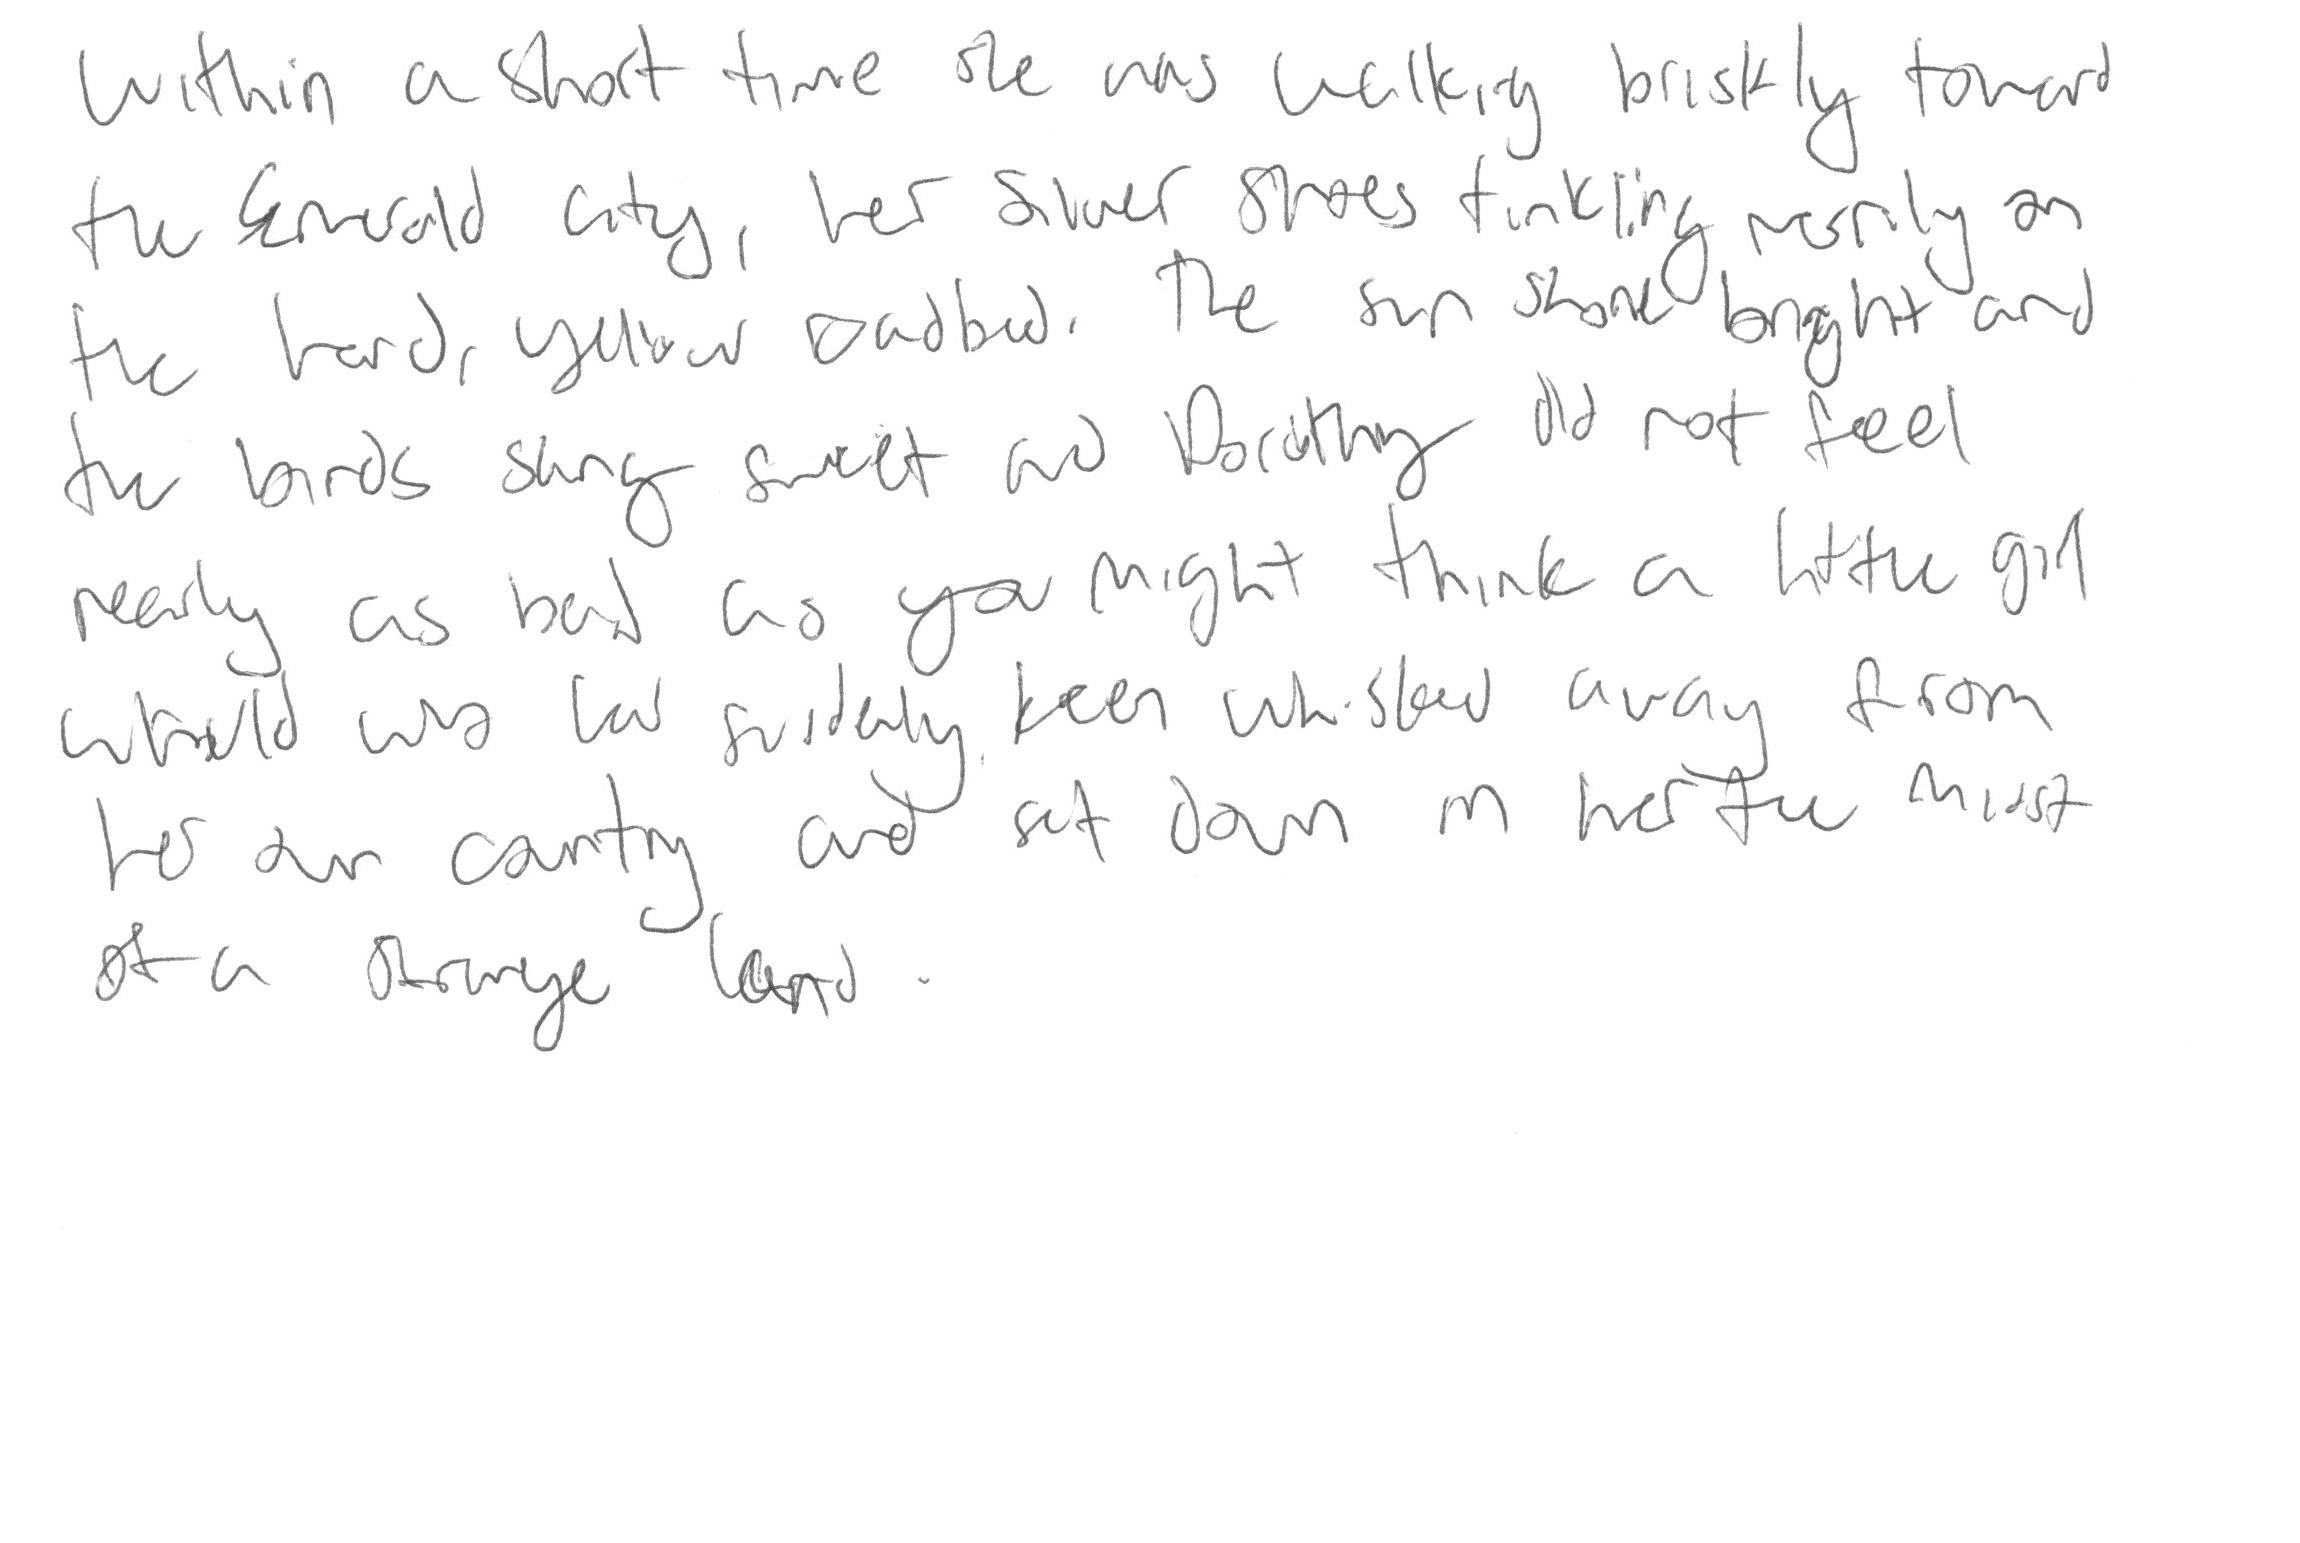 Within a short time she was walking briskly toward
the Emerald City, her Silver Shoes tinkling merrily on
the hard, yellow roadbed. The sun shone bright and
the birds sung sweet and Dorothy did not feel
nearly as bad as you might think a little girl
would who had suddenly been whisked away from
her own country and set down in her the midst
of a strange land.